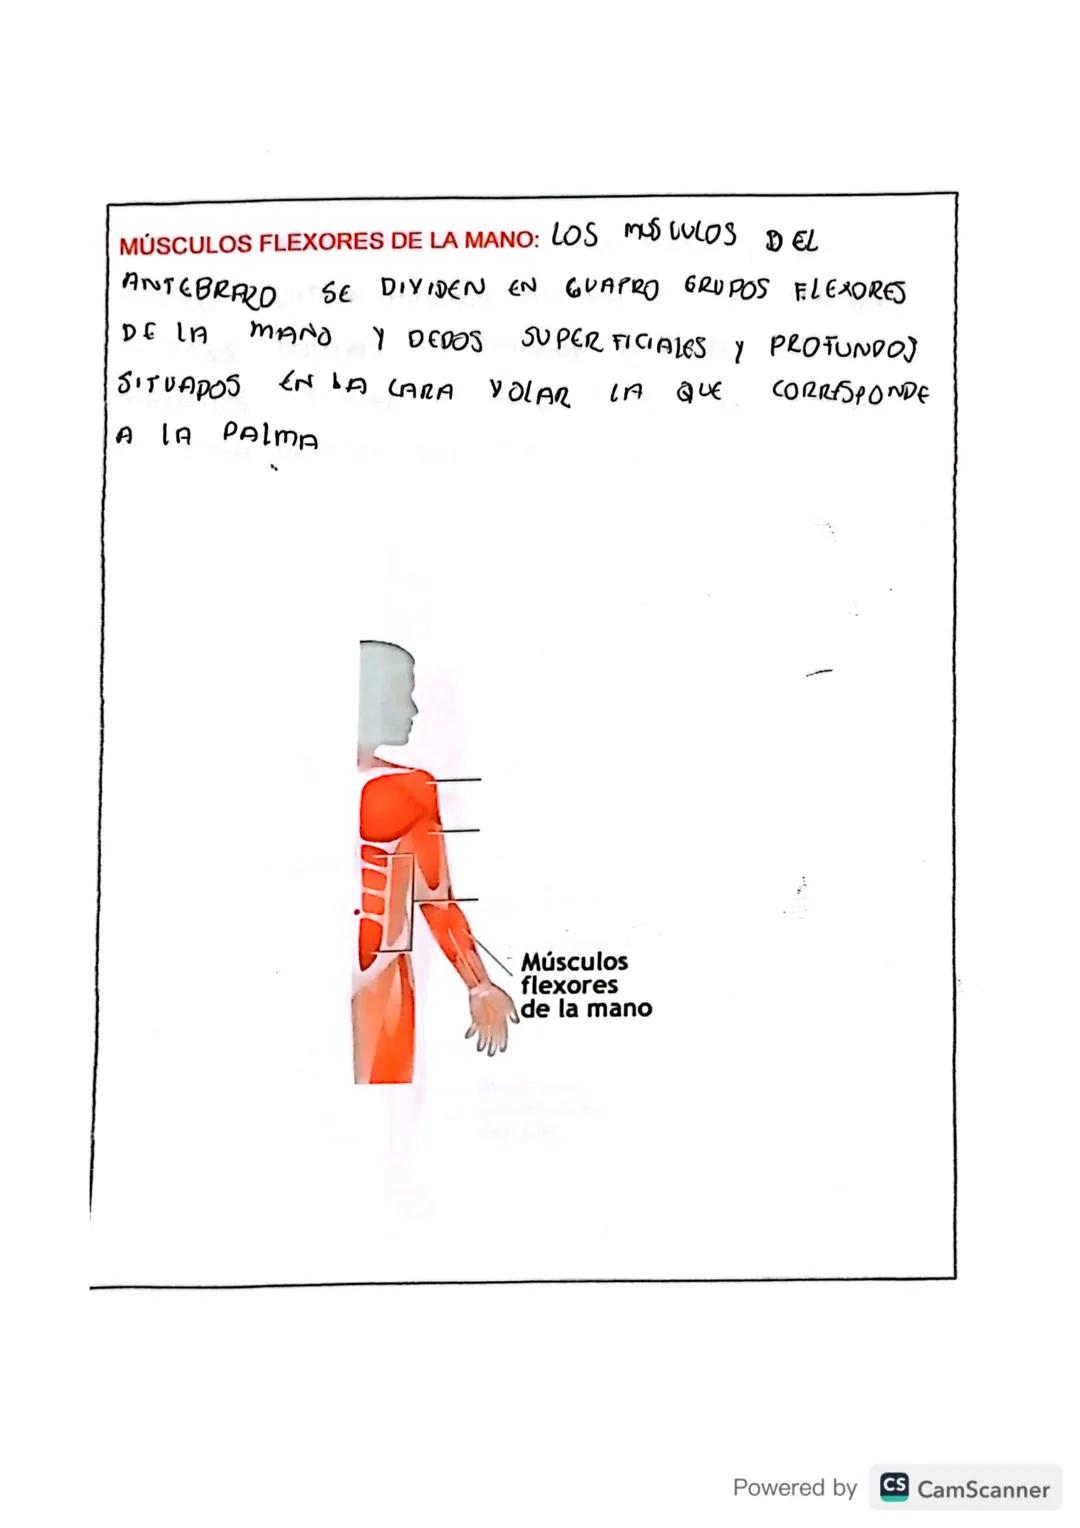 MÚSCULOS FLEXORES DE LA MANO: LOS MÚSCULOS DEL
ANTEBRAZO SE DIVIDEN EN CUATRO GRUPOS FLEXORES
DE LA MANO Y DEDOS SUPERFICIALES Y PROFUNDOS
SITUADOS EN LA CARA VOLAR LA QUE CORRESPONDE
A LA PALMA
Músculos
flexores
de la mano
Powered by CS CamScanner